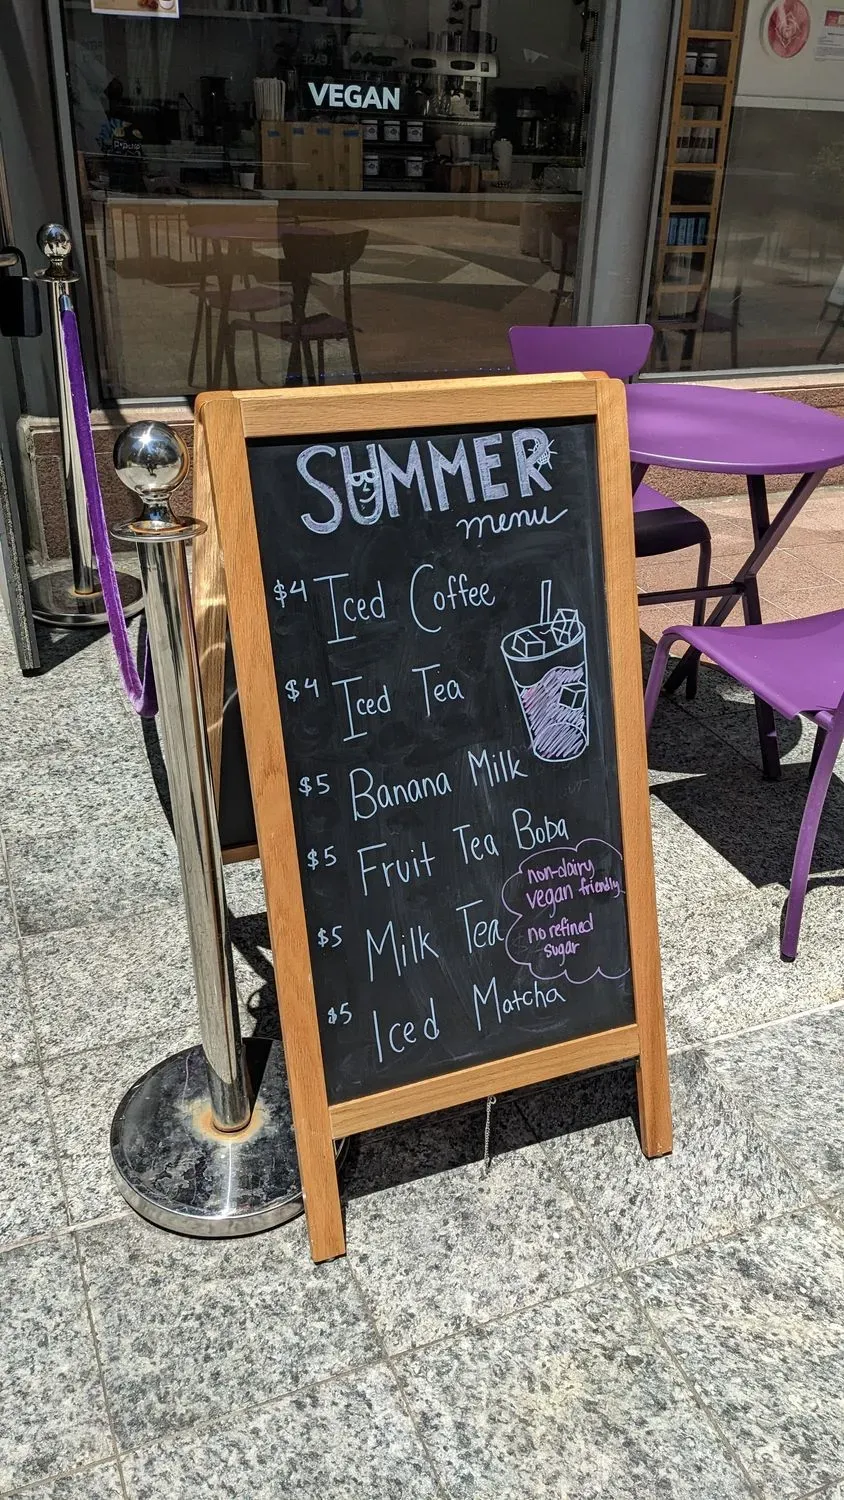 VEGAN
SUMMER
menu
$4 Iced Coffee
$4 Iced Tea
$5 Banana Milk
$5 Fruit Tea Boba
$5 Milk Tea
non-dairy
vegan friendly
no refined
sugar
$5 Iced Matcha